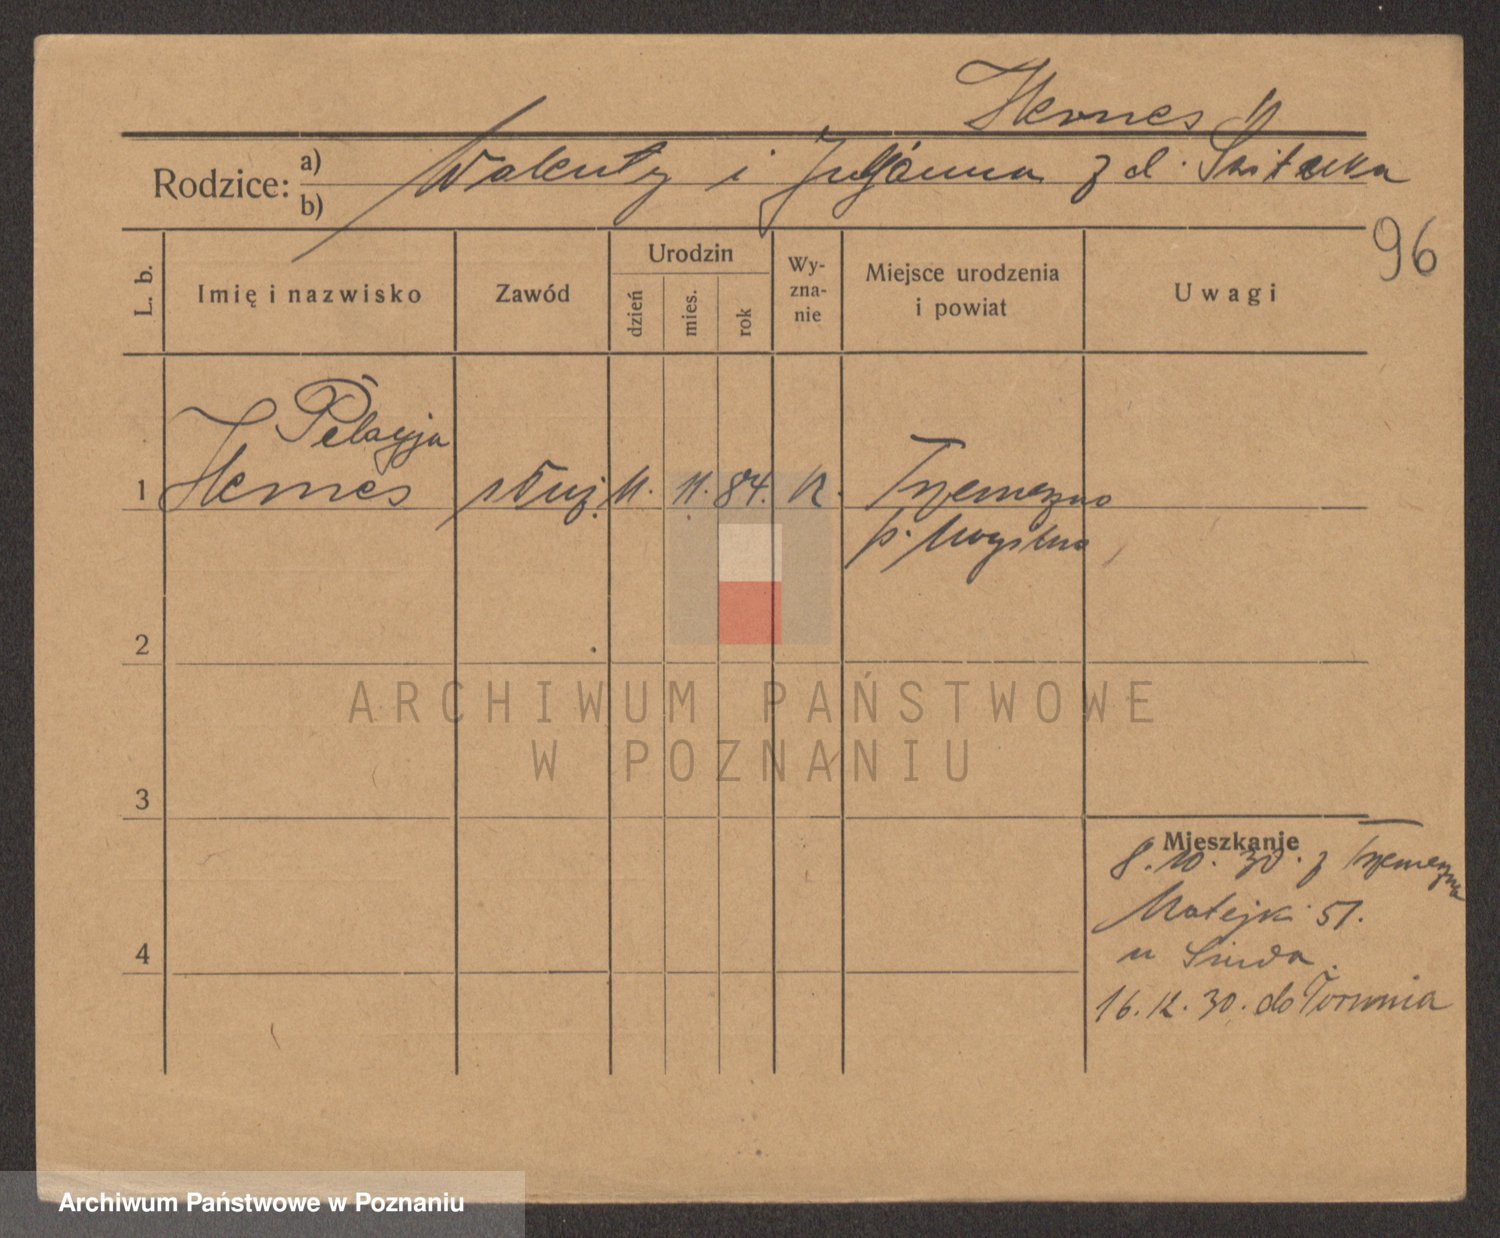 Hernes
Rodzice: a) Walenty i Julianna z d.
b)
96
L. b.
Imię i nazwisko
Zawód
Urodzin
dzień
mies.
rok
Wy-
zna-
nie
Miejsce urodzenia
i powiat
Uwagi
Pelagja
1 Hernes służ. 11. 11. 84. K. Trzemeszno
p. Mogilno
2
3
4
Mieszkanie
8.10.30. z Trzemeszna
Matejki 51.
u
16.12.30. do Torunia
ARCHIWUM PAŃSTWOWE
W POZNANIU
Archiwum Państwowe w Poznaniu